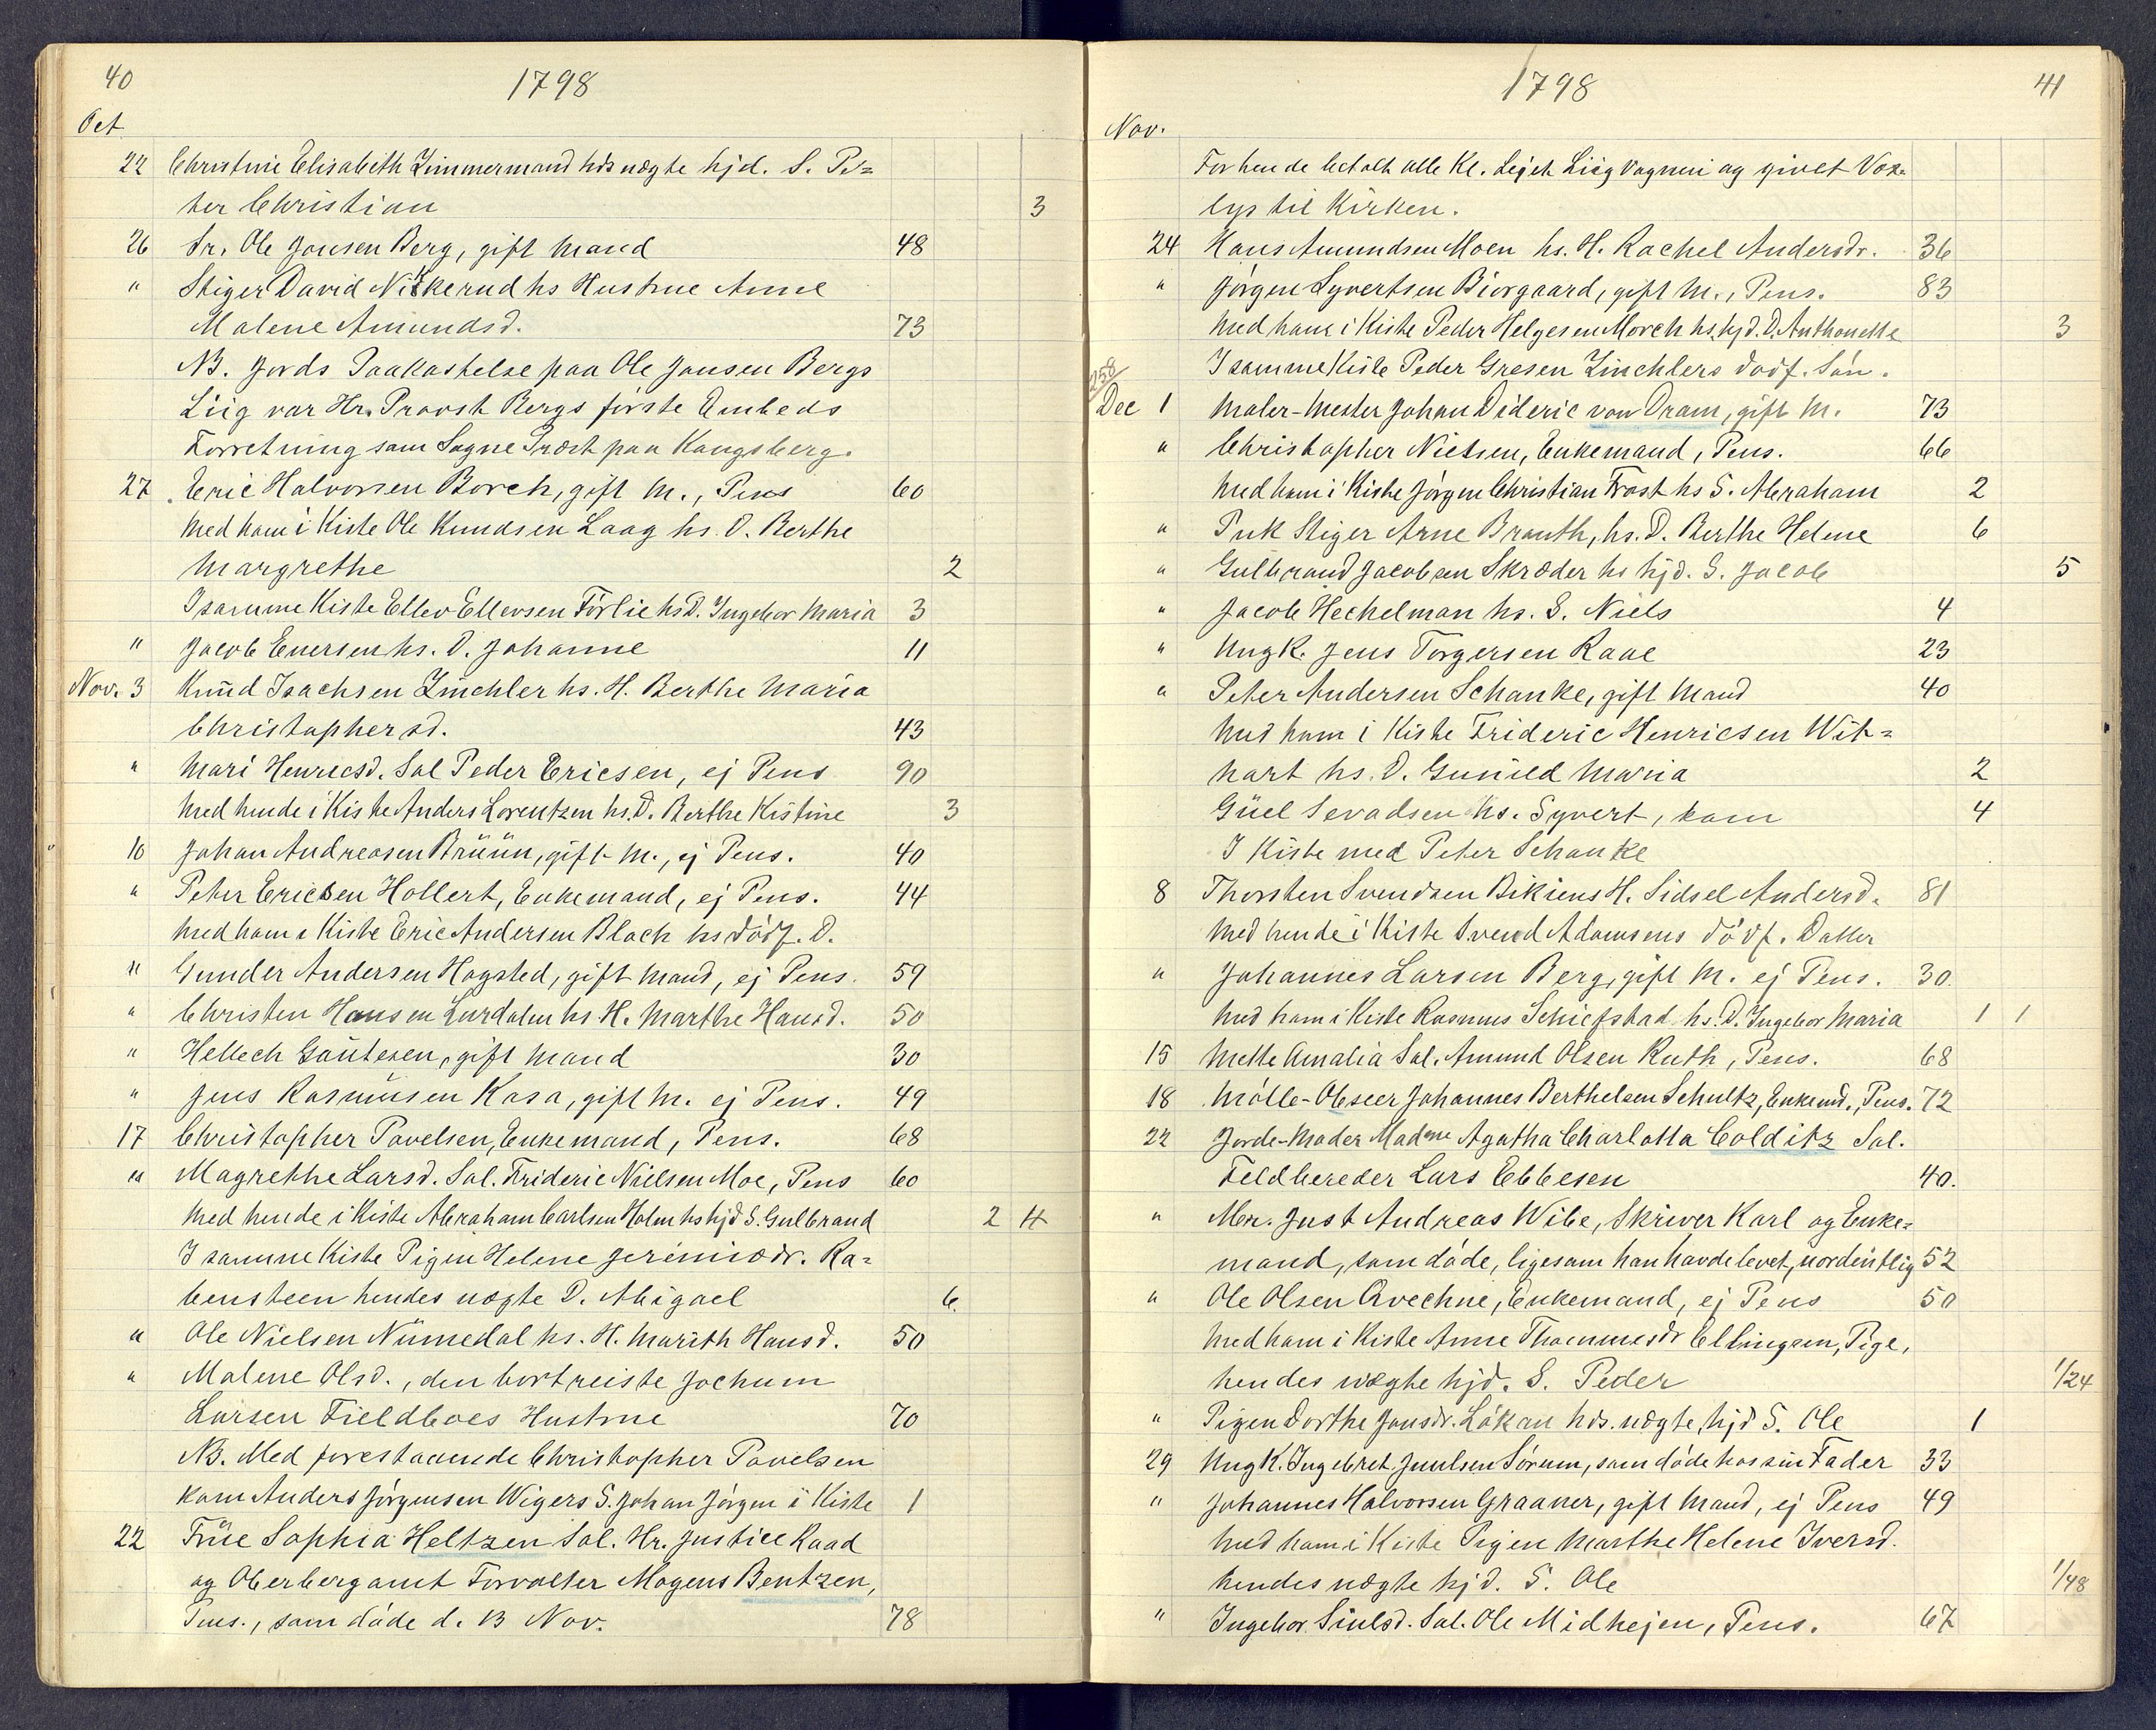 40
1798
Oct
22 Christine Elisabeth Zimmermand hds uægte hjd. S. Pe=
ter Christian 3
26 Sr. Ole Jonsen Berg, gift Mand 48
" Stiger David Nikkerud hs Hustrue Anne
Malene Amundsd. 73
NB. Jords Paakastelse paa Ole Jonsen Bergs
Liig var Hr. Provst Bergs förste Embeds
Forretning som Sogne Præst paa Kongsberg.
27 Eric Halvorsen Borch, gift M., Pens 60
Med ham i Kiste Ole Knudsen Laag hs. D. Berthe
Margrethe 2
I samme Kiste Ellev Ellevsen Förlie hs D. Ingebor Maria 3
" Jacob Enersen hs. D. Johanne 11
Nov. 3 Knud Isachsen Zinchler hs. H. Berthe Maria
Christophersd. 43
" Mari Henrecsd. Sal Peder Ericsen, ej Pens 90
Med hende i Kiste Anders Lorentzen hs. D. Berthe Kistine 3
10 Johan Andreasen Brüün, gift M., ej Pens. 40
" Peter Ericsen Hollert, Enkemand, ej Pens. 44
Med ham i Kiste Eric Andersen Black hs dödf. D.
" Gunder Andersen Hagsted, gift Mand, ej Pens. 59
" Christen Hansen Lurdalen hs. H. Marthe Hansd. 50
" Hellech Gautesen, gift Mand 30
" Jens Rasmusen Kasa, gift M. ej Pens. 49
17 Christopher Pavelsen, Enkemand, Pens. 68
" Magrethe Larsd. Sal. Frideric Nielsen Moe, Pens 60
Med hende i Kiste Abraham Carlsen Holm hs hjd S. Gulbrand 2 4
I samme Kiste Pigen Helene Jeremiædr. Ra=
bensteen hendes uægte D. Abigael 6.
" Ole Nielsen Nümedal hs. H. Marith Hansd. 50
" Malene Olsd., den bortreiste Jochum
Larsen Fieldboes Hustrue 70
NB. Med forestaaende Christopher Pavelsen
kom Anders Jörgensen Wigers S. Johan Jörgen i Kiste 1
22 Früe Sophia Heltzen Sal. Hr. Justice Raad
og Oberbergamt Forvalter Mogens Bentzen,
Pens., som döde d. 13 Nov. 78
1798
41
Nov.
For hende betalt alle Kl. Lejet Liig Vognen og givet Vox=
lys til Kirken.
24 Hans Amundsen Moen hs. H. Rachel Andersdr. 36
" Jörgen Syvertsen Biorgaard, gift M., Pens. 83
Med ham i Kiste Peder Helgesen Morch hs. hjd. D. Anthonette 3
I samme Kiste Peder Gresen Zinchlers dödf. Sön.
258
Dec 1 Maler-Mester Johan Dideric von Dram, gift M. 73
" Christopher Nielsen, Enkemand, Pens. 66
Med ham i Kiste Jörgen Christian Frost hs S. Abraham 2
" Puk Stiger Arne Brauth, hs. D. Berthe Helene 6
" Gulbrand Jacobsen Skræder hs hjd. S. Jacob 5
" Jacob Hechelman hs. S. Niels 4
" Ung K. Jens Torgersen Raae 23
" Peter Andersen Schanke, gift Mand 40
Med ham i Kiste Frideric Henricsen Wit=
hart hs. D. Gunild Maria 2
Güel Sevadsen hs. Syvert, kom 4
I Kiste med Peter Schanke
8 Thorsten Svendsen Bikiens H. Sidsel Andersd. 81
Med hende i Kiste Svend Adamsens dödf. Datter
" Johannes Larsen Berg, gift M. ej Pens. 30.
Med ham i Kiste Rasmus Schiefstad hs. D. Ingebor Maria 1 1
15 Mette Amalia Sal. Amund Olsen Ruth, Pens. 68
18 Mölle-Obseer Johannes Berthelsen Schultz, Enkemd., Pens. 72
22 Jorde-Moder Madme Agatha Charlotta Colditz Sal.
Feldbereder Lars Ebbesen 40.
" Mr. Just Andreas Wibe, Skriver Karl og Enke=
mand, som döde, ligesom han havde levet, uordentlig 52
" Ole Olsen Qvechne, Enkemand, ej Pens 50
Med ham i Kiste Anne Thommesdr Ellingsen, Pige,
hendes uægte hjd. S. Peder 1/24
" Pigen Dorthe Jonsdr. Lökan hds. uægte, hjd S. Ole 1
29 Ung K. Ingebret Juulsen Sörum, som döde hos sin Fader 33
" Johannes Halvorsen Graaner, gift Mand, ej Pens 49
Med ham i Kiste Pigen Marthe Helene Iversd.
hendes uægte hjd. S. Ole 1/48
" Ingebor Siulsd. Sal. Ole Midhejen, Pens. 67